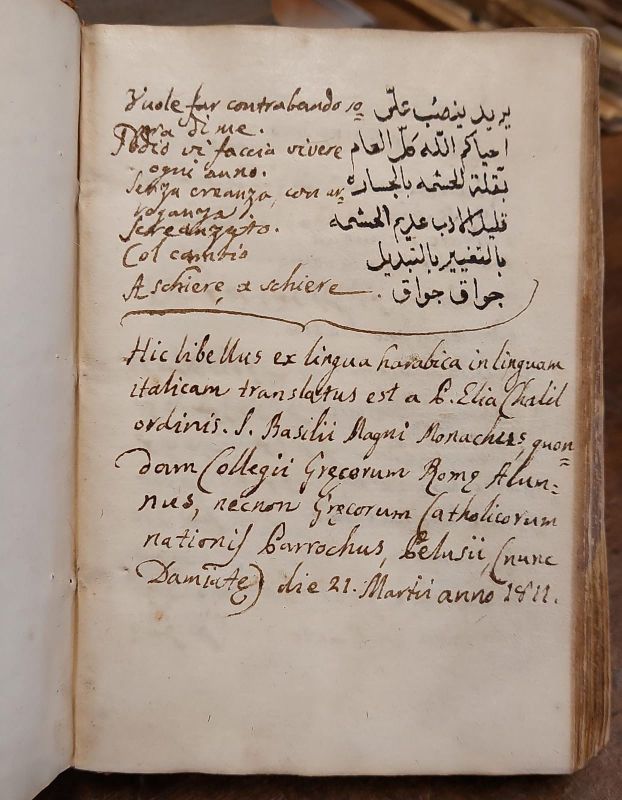 Vuole far contrabando so= يريد ينصب علّى
pra di me.
Iddio vi faccia vivere احياكم الله كلّ العام
ogni anno.
Senza creanza, con ar= بقلة الحشمه بالجساره
roganza.
Screanzato. قليل الادب عديم الحشمه
Col cambio بالتغيير بالتبديل
A schiere a schiere. جواق جواق
Hic libellus ex lingua harabica in linguam
italicam translatus est a P. Elia Chalil
ordinis S. Basilii Magni Monachus, quon=
dam Collegii Gręcorum Romę Alum=
nus, necnon Gręcorum Catholicorum
nationis Parrochus, Pelusii, (nunc
Damiatę) die 21. Martii anno 1811.